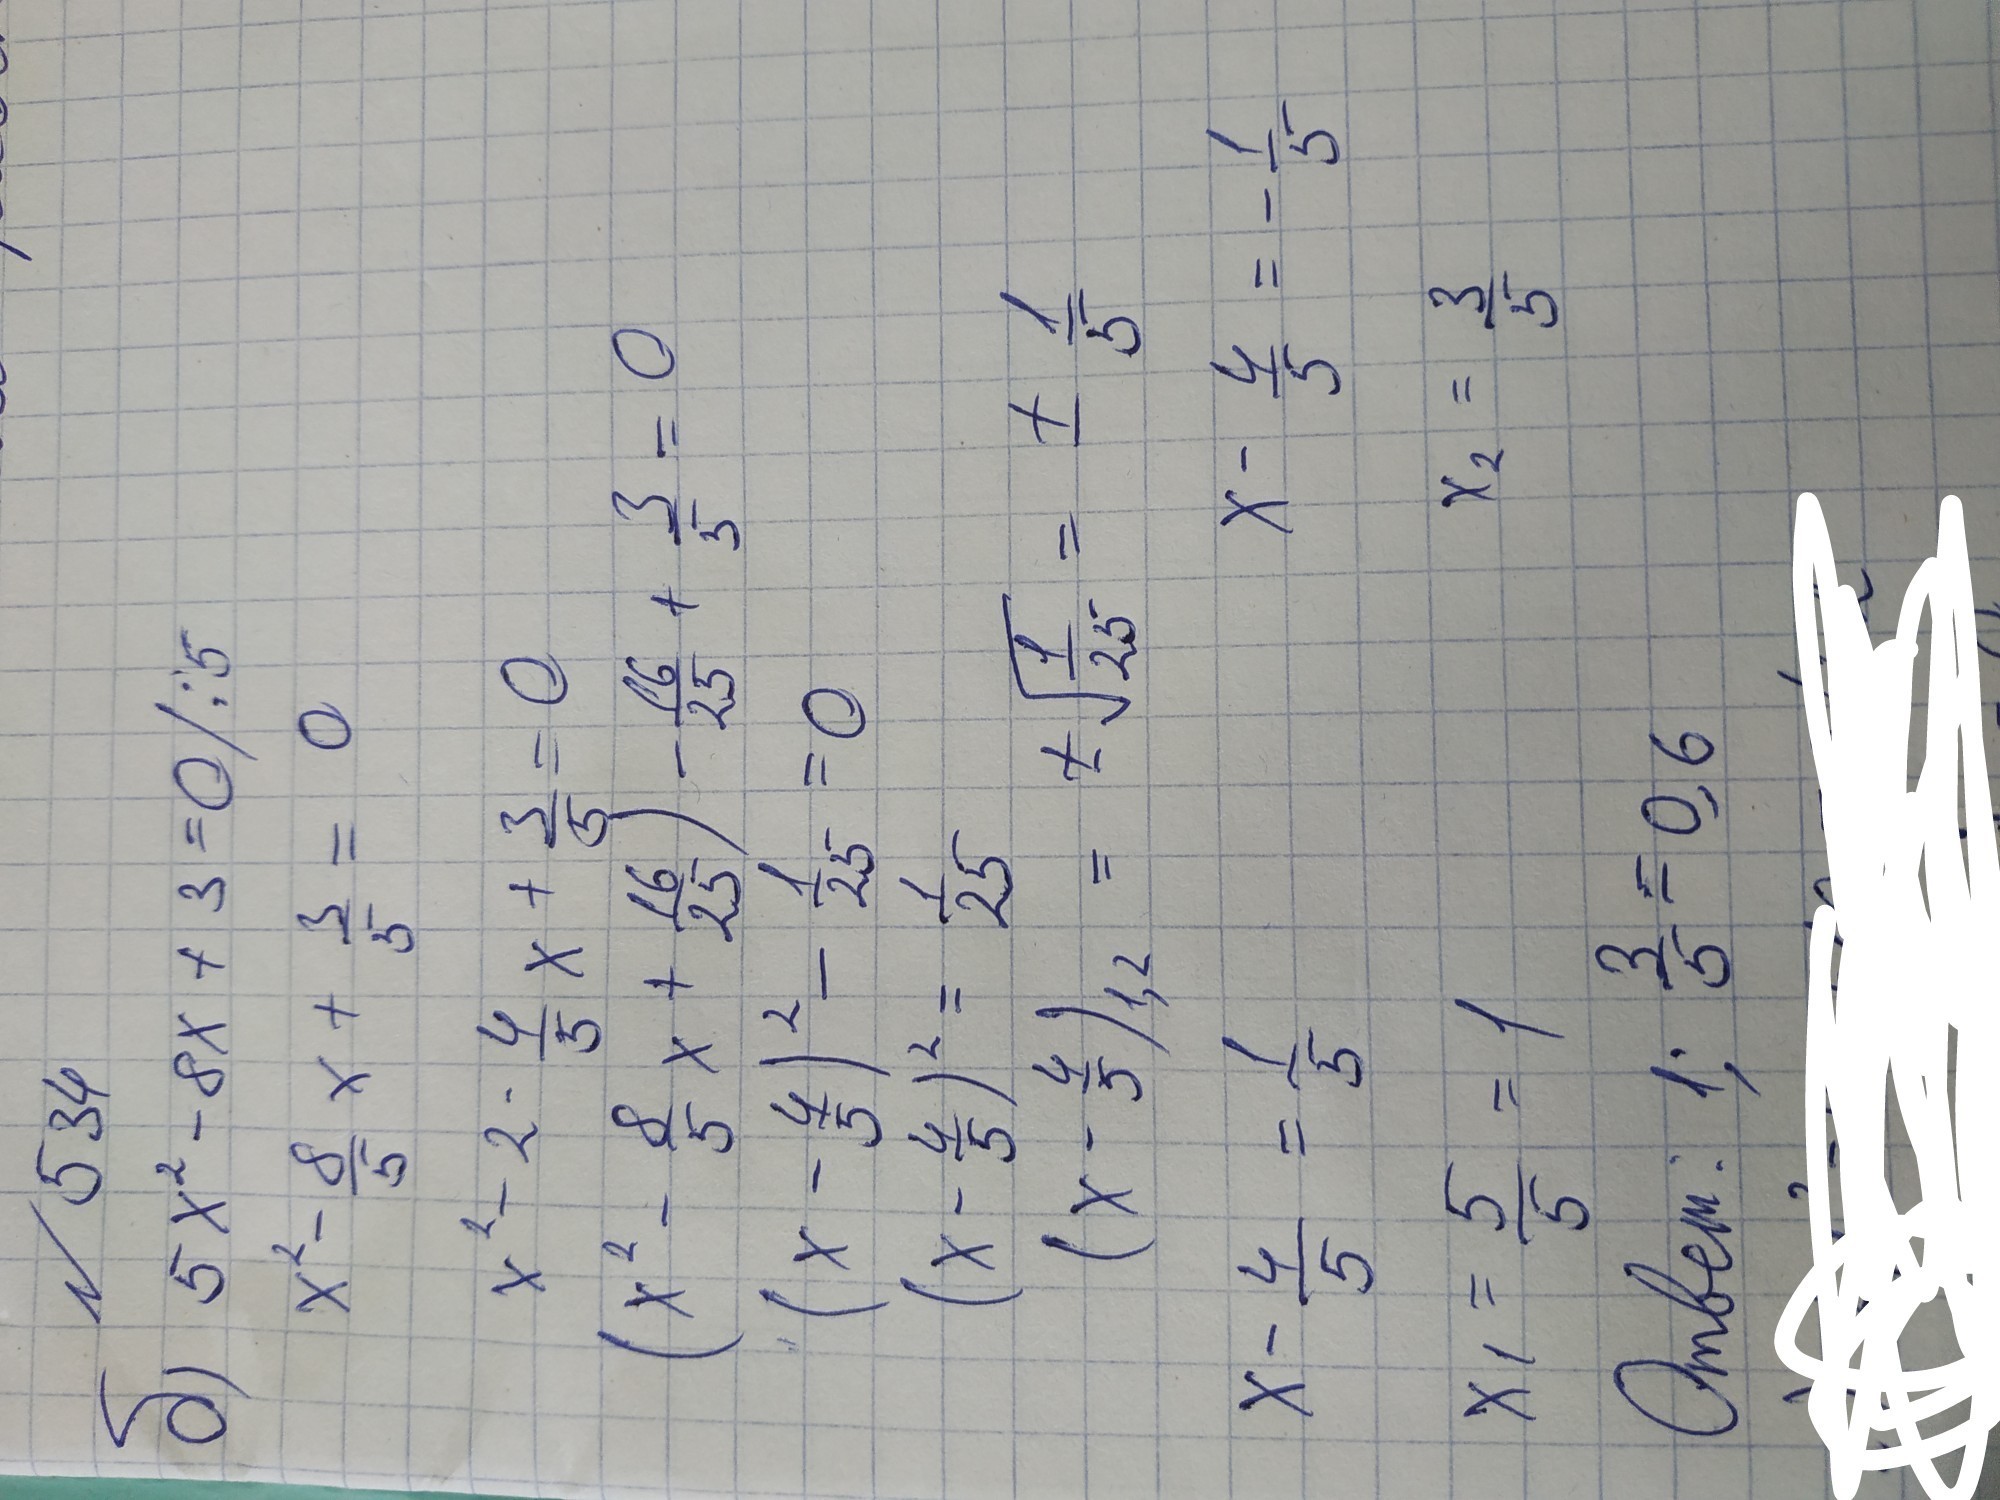 № 534
б) 5x² - 8x + 3 = 0 / :5
x² - 8/5 x + 3/5 = 0
x² - 2 · 4/5 x + 3/5 = 0
(x² - 8/5 x + 16/25) - 16/25 + 3/5 = 0
(x - 4/5)² - 1/25 = 0
(x - 4/5)² = 1/25
(x - 4/5)₁,₂ = ±√(1/25) = ± 1/5
x - 4/5 = 1/5 x - 4/5 = - 1/5
x₁ = 5/5 = 1 x₂ = 3/5
Ответ: 1; 3/5 = 0,6